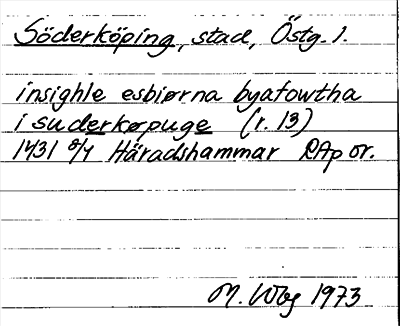 Söderköping, stad, Östg. l.
insighle esbiørna byafowtha
i suderkøpuge (r. 13)
1431 8/4 Häradshammar RAp or.
M. Wbg 1973